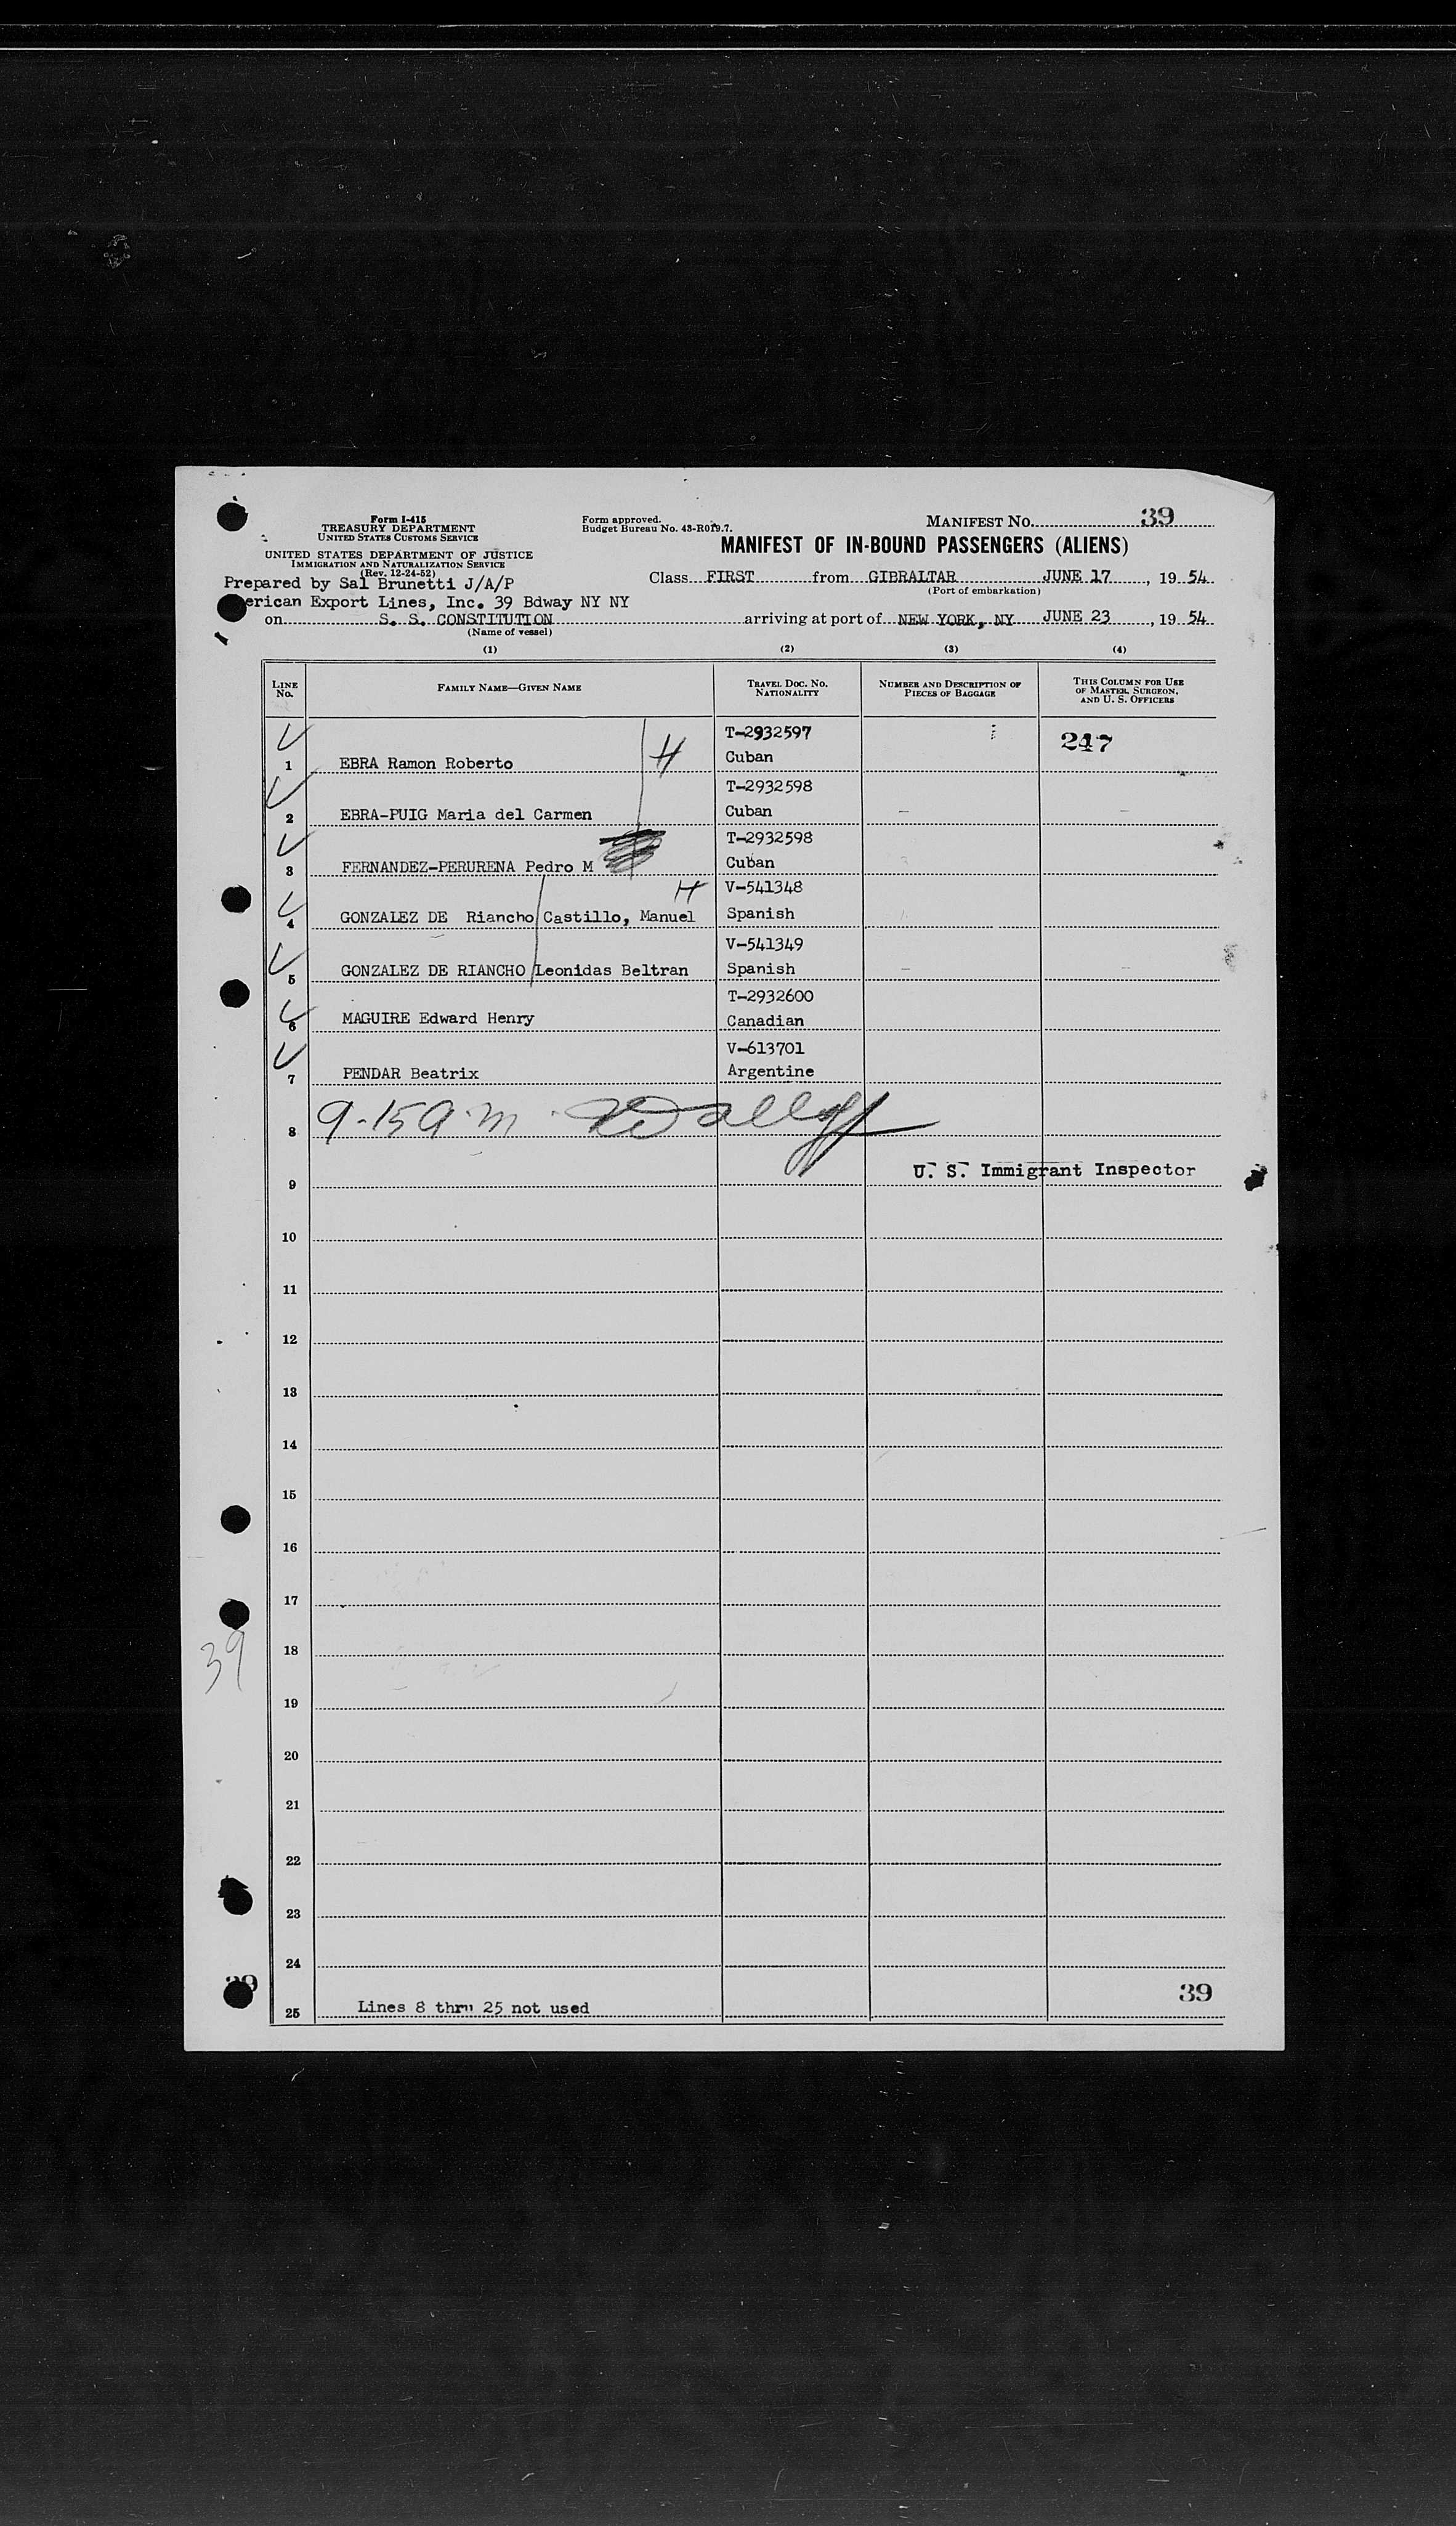 Form I-415
TREASURY DEPARTMENT
UNITED STATES CUSTOMS SERVICE
UNITED STATES DEPARTMENT OF JUSTICE
IMMIGRATION AND NATURALIZATION SERVICE
(Rev. 12-24-52)
Form approved.
Budget Bureau No. 43-R019.7.
MANIFEST No. 39
MANIFEST OF IN-BOUND PASSENGERS (ALIENS)
Prepared by Sal Brunetti J/A/P
erican Export Lines, Inc. 39 Bdway NY NY
Class FIRST from GIBRALTAR JUNE 17, 1954
(Port of embarkation)
on S. S. CONSTITUTION arriving at port of NEW YORK, NY JUNE 23, 1954
(Name of vessel)
(1) (2) (3) (4)
LINE No. FAMILY NAME—GIVEN NAME TRAVEL DOC. NO. NATIONALITY NUMBER AND DESCRIPTION OF PIECES OF BAGGAGE THIS COLUMN FOR USE OF MASTER, SURGEON, AND U. S. OFFICERS
T-2932597 247
1 EBRA Ramon Roberto H Cuban
T-2932598
2 EBRA-PUIG Maria del Carmen Cuban
T-2932598
3 FERNANDEZ-PERURENA Pedro M Cuban
H V-541348
4 GONZALEZ DE Riancho Castillo, Manuel Spanish
V-541349
5 GONZALEZ DE RIANCHO Leonidas Beltran Spanish
T-2932600
6 MAGUIRE Edward Henry Canadian
V-613701
7 PENDAR Beatrix Argentine
8 9-15 a.m.
9 U. S. Immigrant Inspector
10
11
12
13
14
15
16
17
18
39
19
20
21
22
23
24
39 39
25 Lines 8 thru 25 not used